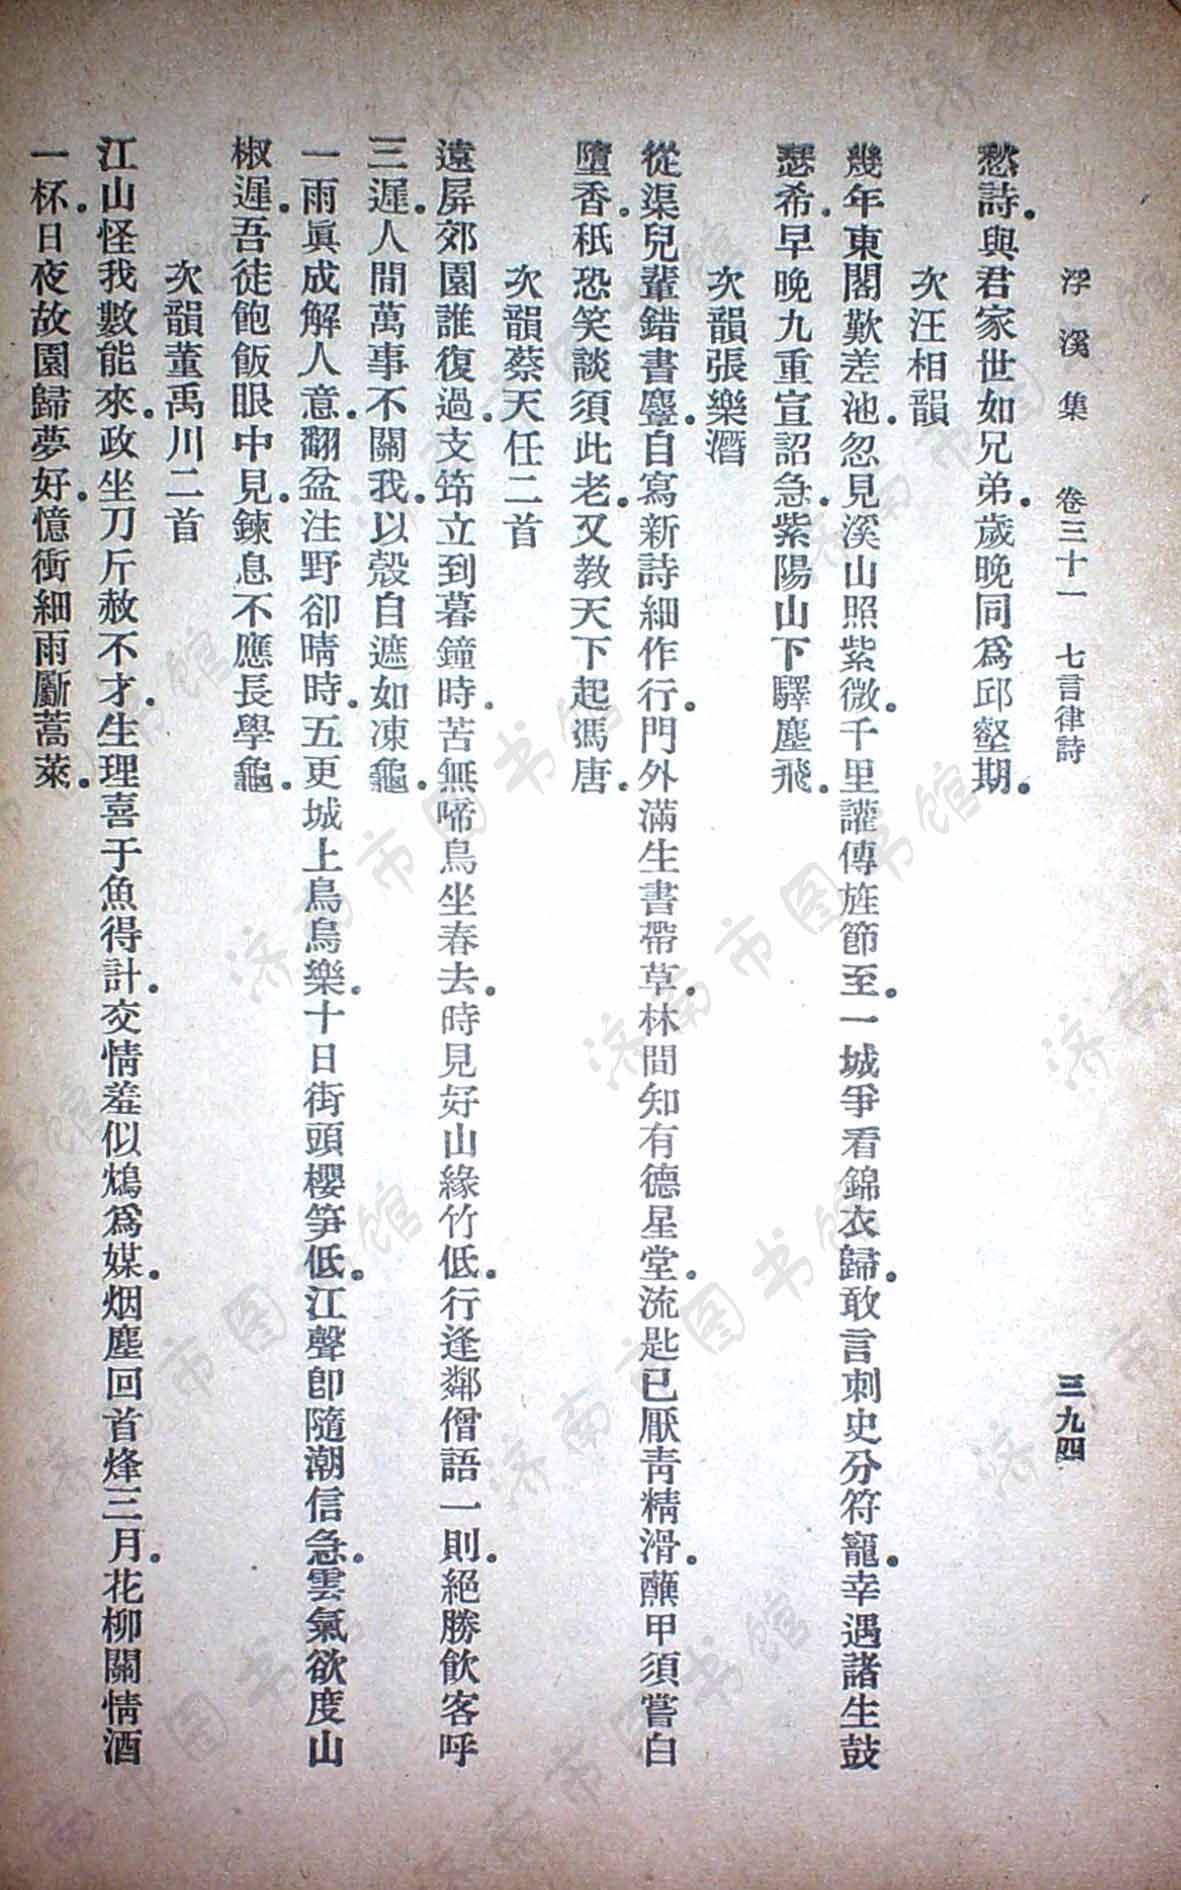 浮溪集 卷三十一 七言律詩 三九四
愁詩。與君家世如兄弟。歲晚同爲邱壑期。
次汪相韻
幾年東閣歎差池。忽見溪山照紫微。千里讙傳旌節至。一城爭看錦衣歸。敢言刺史分符寵。幸遇諸生鼓
瑟希。早晚九重宣詔急。紫陽山下驛塵飛。
次韻張樂潛
從渠兒輩錯書麞。自寫新詩細作行。門外滿生書帶草。林間知有德星堂。流匙已厭靑精滑。蘸甲須嘗白
墮香。秖恐笑談須此老。又教天下起馮唐。
次韻蔡天任二首
遠屏郊園誰復過。支笻立到暮鐘時。苦無啼鳥坐春去。時見好山緣竹低。行逢鄰僧語一則。絕勝飲客呼
三遲。人間萬事不關我。以殼自遮如凍龜。
一雨眞成解人意。翻盆注野卻晴時。五更城上烏烏樂。十日街頭櫻笋低。江聲卽隨潮信急。雲氣欲度山
椒遲。吾徒飽飯眼中見。鍊息不應長學龜。
次韻董禹川二首
江山怪我數能來。政坐刀斤赦不才。生理喜于魚得計。交情羞似鴆爲媒。烟塵回首烽三月。花柳關情酒
一杯。日夜故園歸夢好。憶衝細雨斸蒿萊。
濟南市图书馆